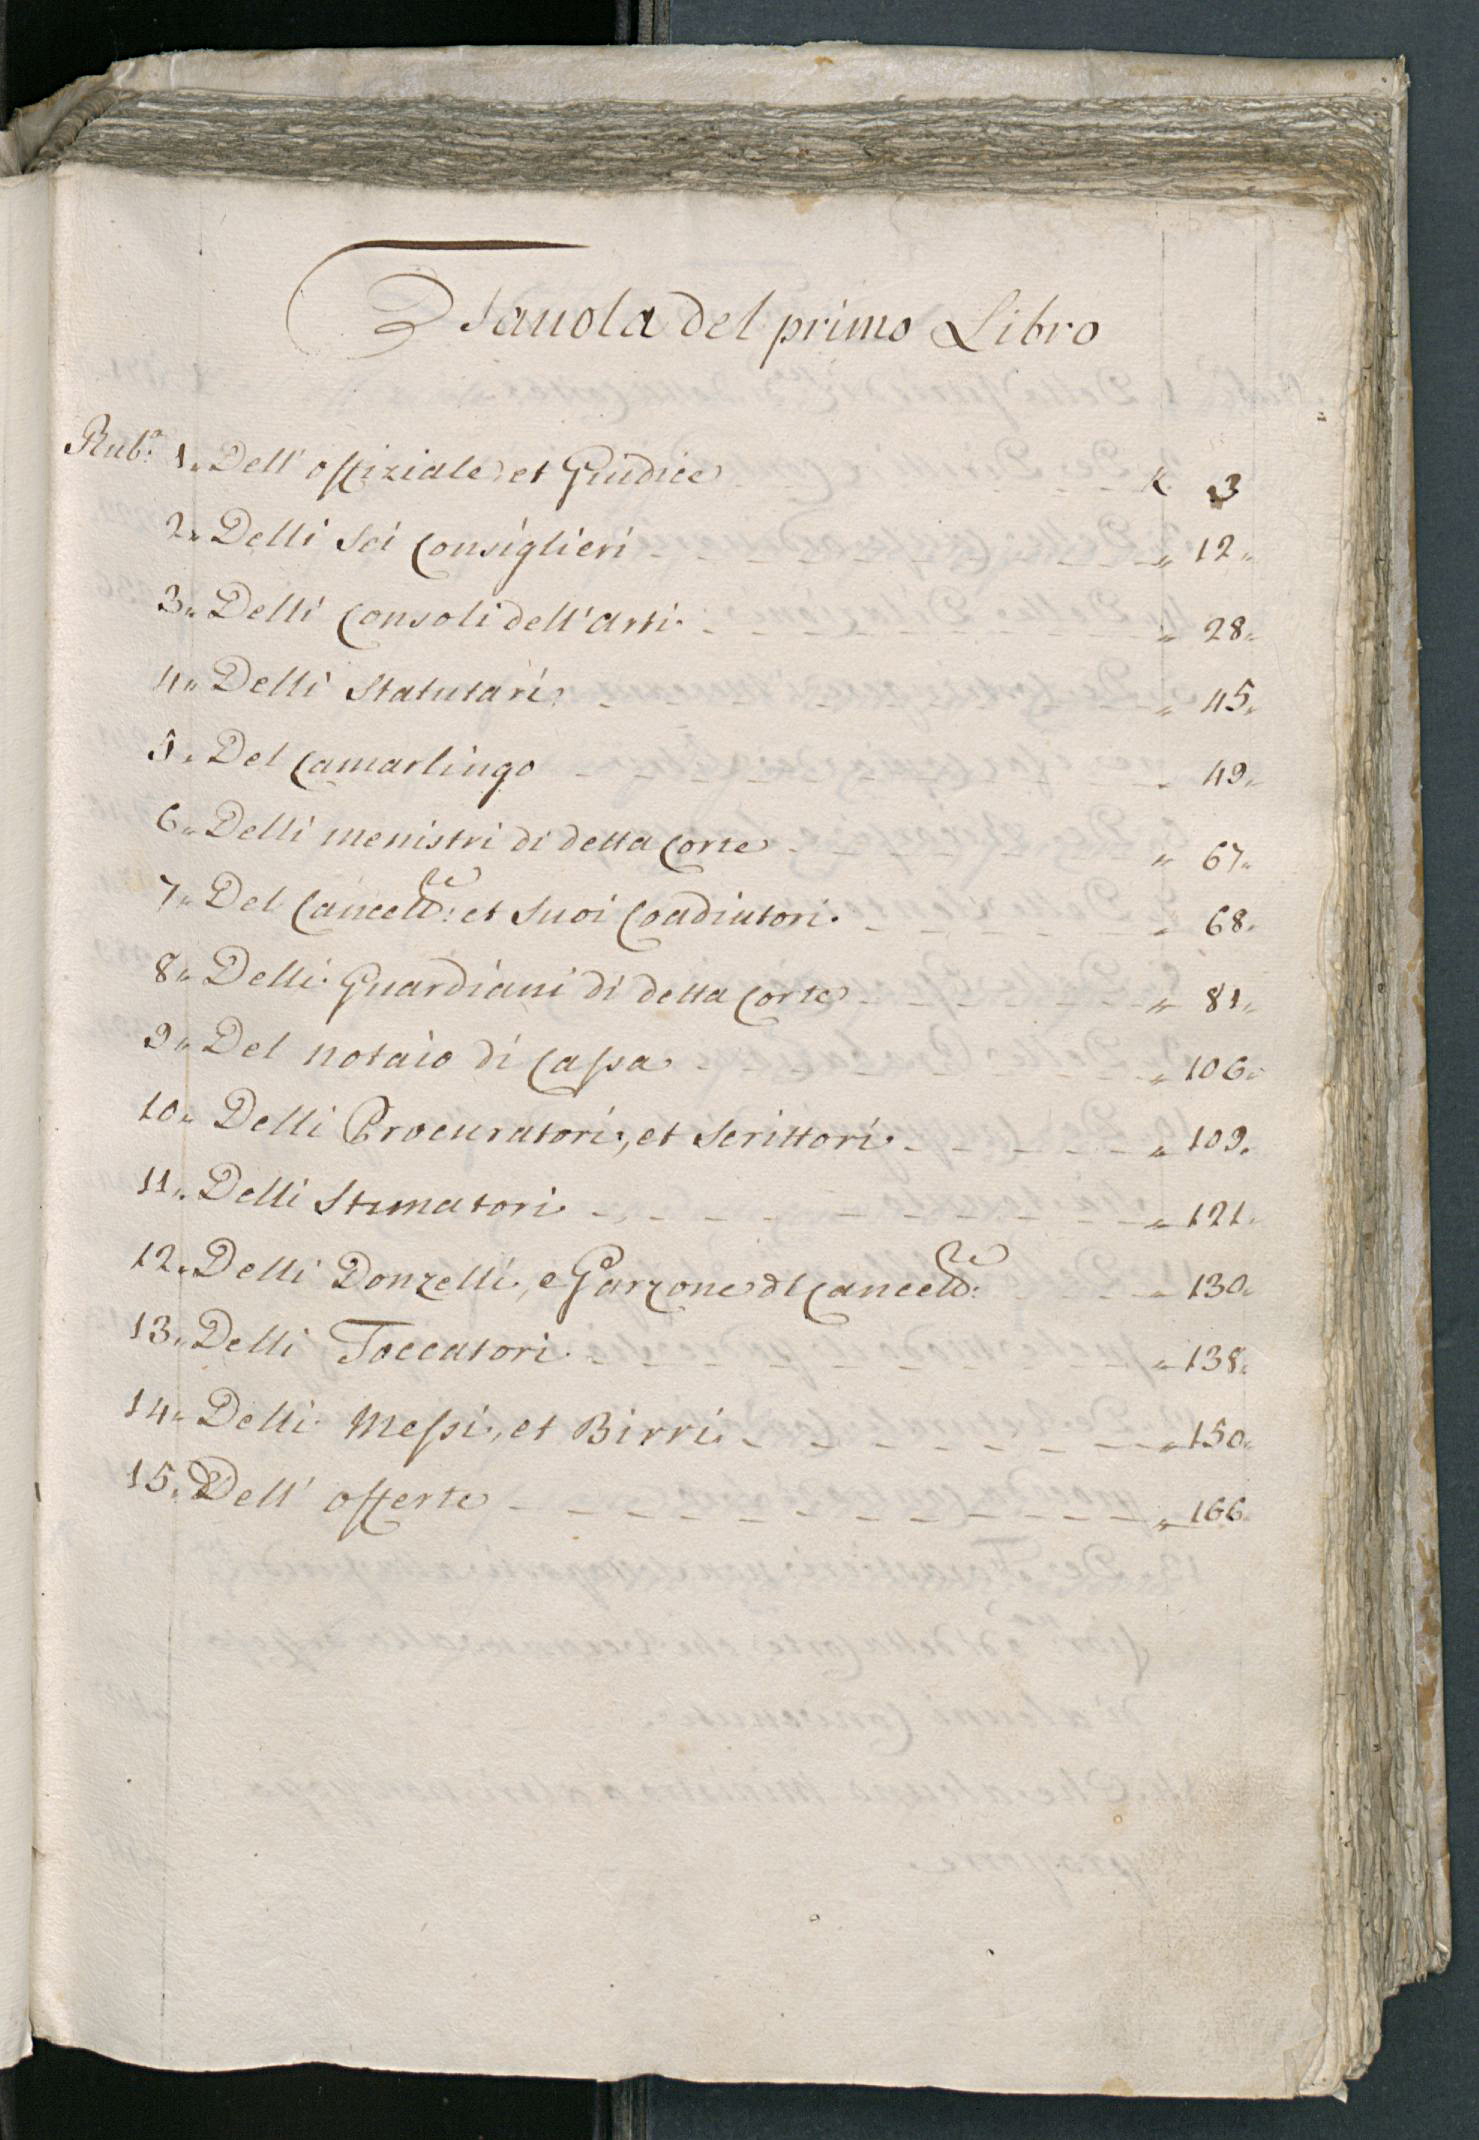 Tauola del primo Libro
Rub.ª 1. Dell' offiziale, et Giudice - - - K. 3
2. Delli Sei Consiglieri - - - - - - - - - " 12.
3. Delli Consoli dell'Arti - - - - - - - - " 28.
4. Delli Statutari - - - - - - - - - - " 45.
5. Del Camarlingo - - - - - - - - - - " 49.
6. Delli menistri di detta Corte - - - - - - " 67.
7. Del Cancell.re et Suoi Coadiutori - - - - - " 68.
8. Delli Guardiani di detta Corte - - - - - - " 81.
9. Del notaio di Cassa - - - - - - - - " 106.
10. Delli Procuratori, et Scrittori - - - - - " 109.
11. Delli Stimatori - - - - - - - - - - " 121.
12. Delli Donzelli, e Garzone dl Cancell.re - - - " 130.
13. Delli Toccatori - - - - - - - - - - " 138.
14. Delli Messi, et Birri - - - - - - - - " 150.
15. Dell' offerte - - - - - - - - - - - " 166.